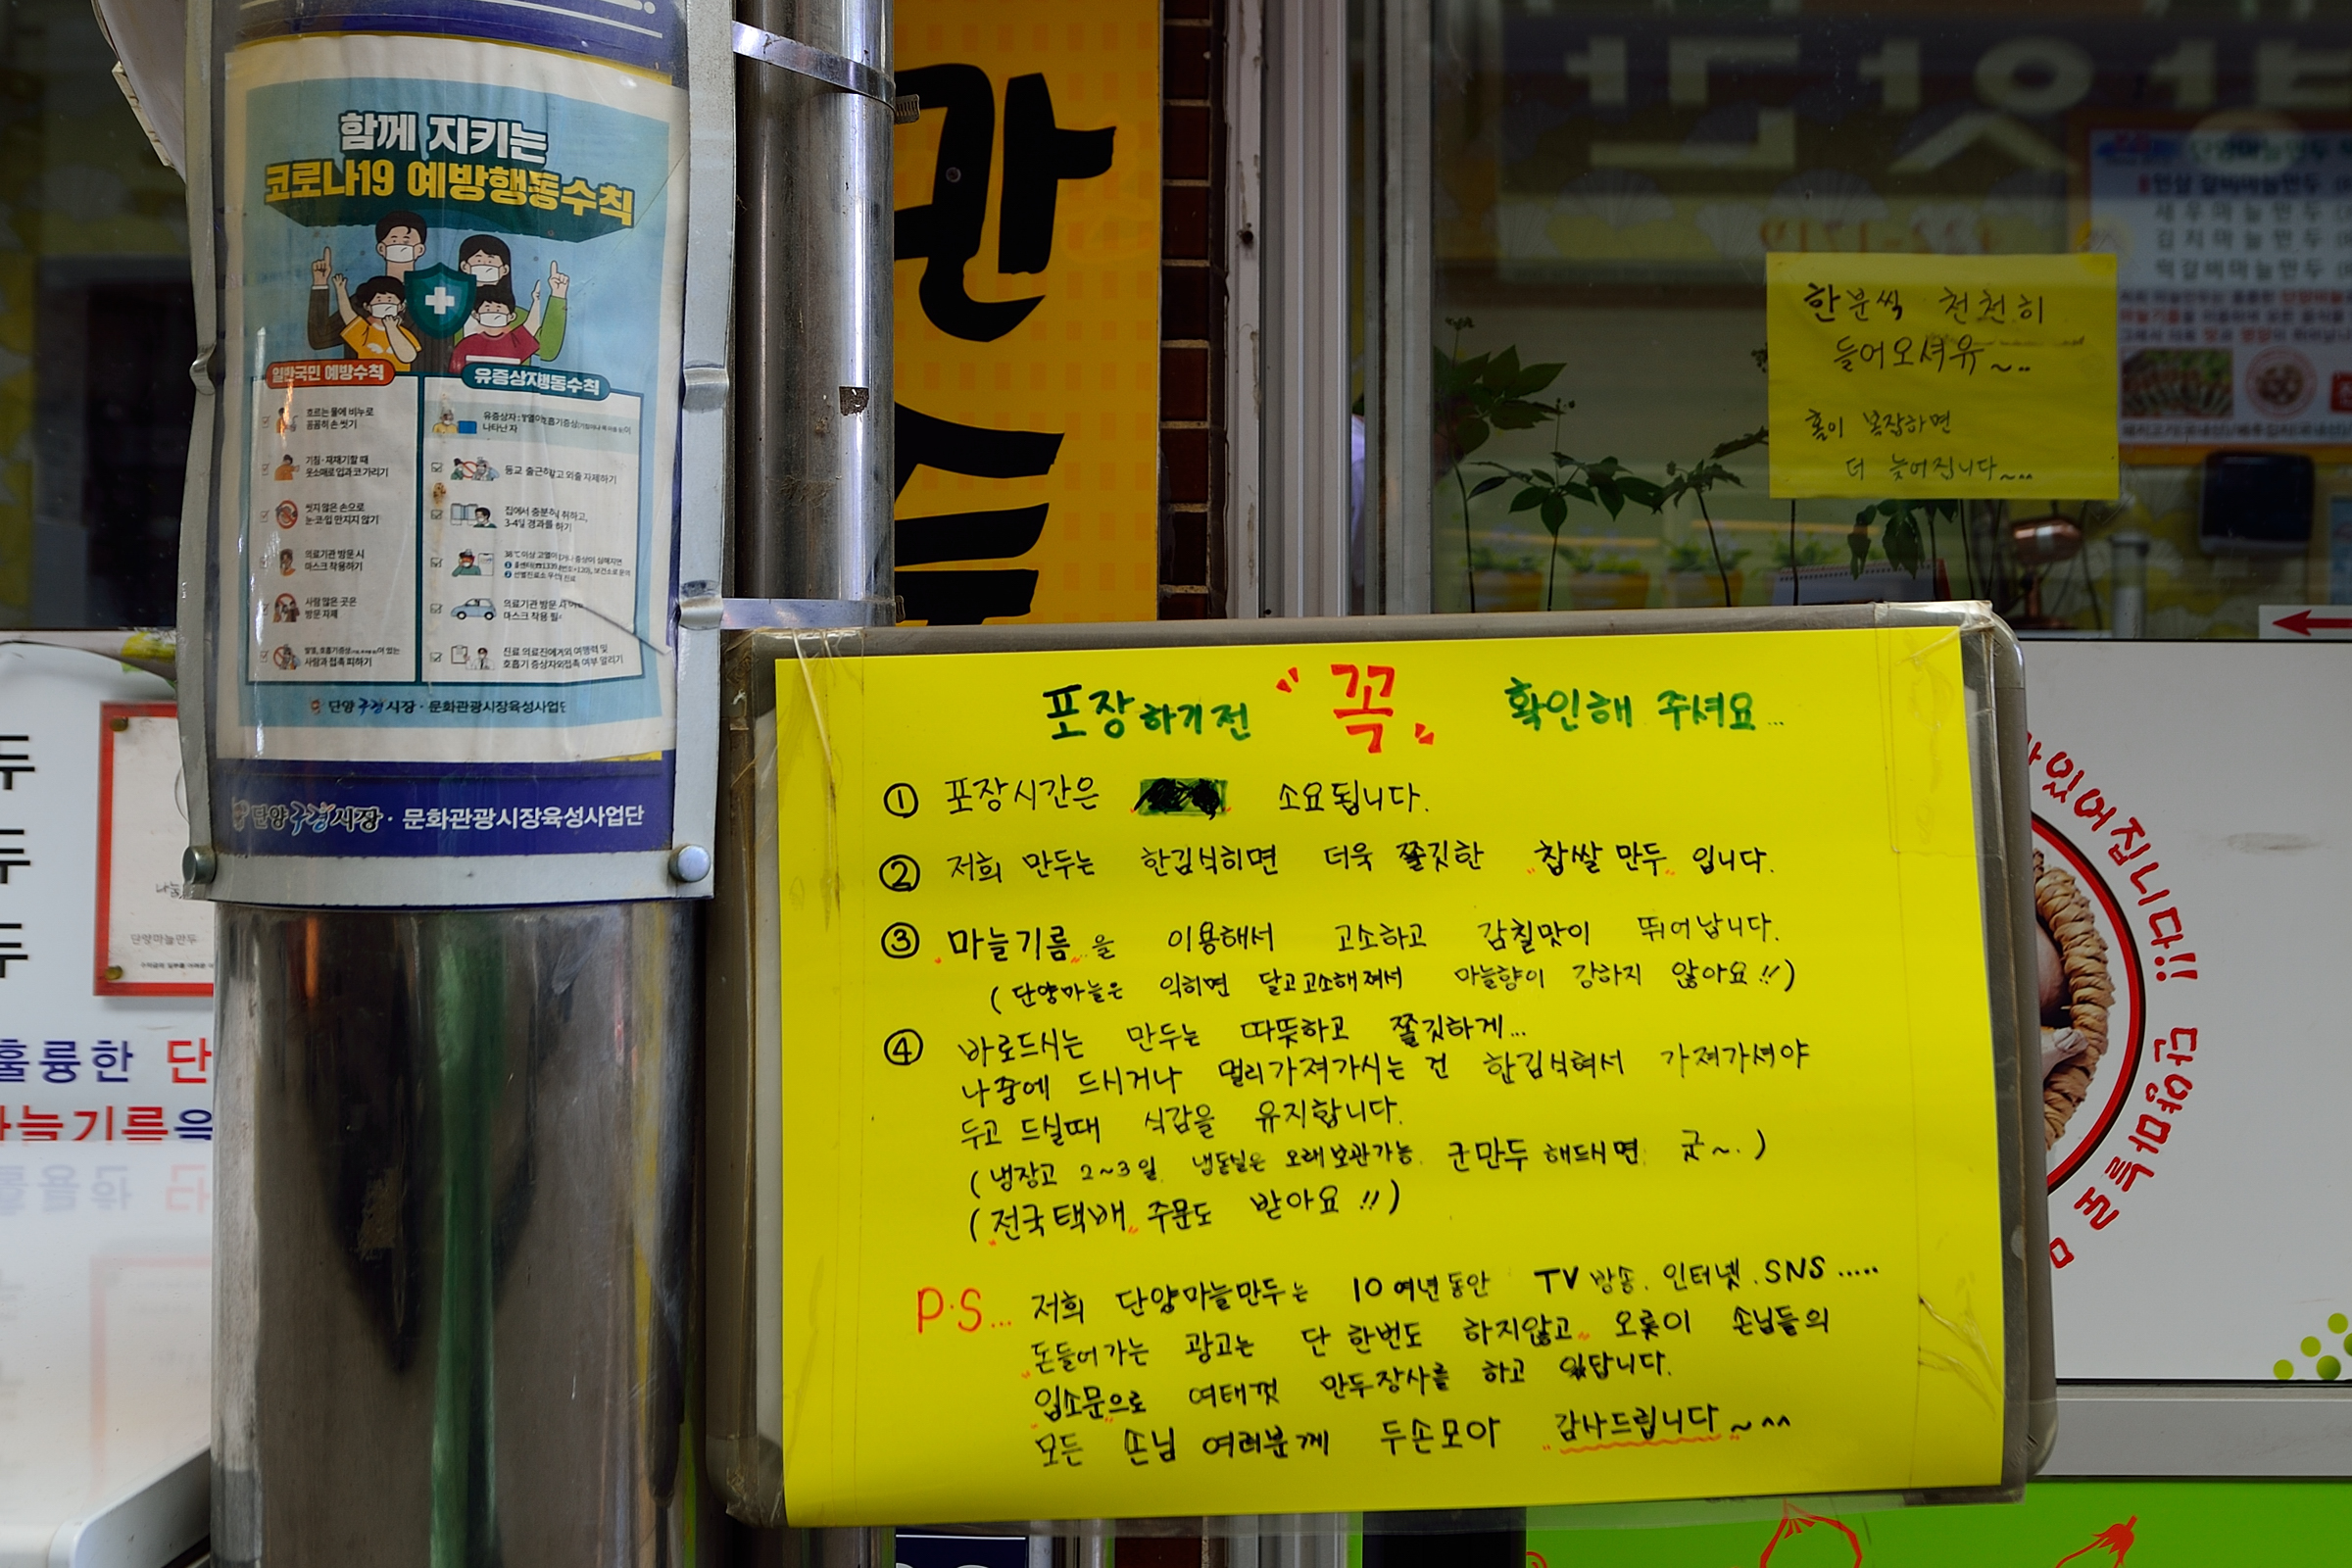 함께 지키는
코로나19 예방행동수칙
일반국민 예방수칙
흐르는 물에 비누로
꼼꼼히 손 씻기
기침·재채기할 때
옷소매로 입과 코 가리기
씻지 않은 손으로
눈·코·입 만지지 않기
의료기관 방문 시
마스크 착용하기
사람 많은 곳은
방문 자제
사람과 접촉 피하기
유증상자행동수칙
나타난 자
등교 출근하고 외출 자제하기
집에서 충분히 취하고,
3-4일 경과를 하기
의료기관 방문 시
마스크 착용 필
진료 의료진에게 여행력 및
호흡기 증상자와접촉 여부 알리기
단양구경시장·문화관광시장육성사업단
단양구경시장·문화관광시장육성사업단
관
한분씩 천천히
들어오셔유~..
홀이 복잡하면
더 늦어집니다~...
포장하기전 "꼭" 확인해 주셔요...
① 포장시간은 소요됩니다.
② 저희 만두는 한김식히면 더욱 쫄깃한 "찹쌀만두" 입니다.
③ "마늘기름"을 이용해서 고소하고 감칠맛이 뛰어납니다.
(단양마늘은 익히면 달고고소해져서 마늘향이 강하지 않아요!!)
④ 바로드시는 만두는 따뜻하고 쫄깃하게...
나중에 드시거나 멀리가져가시는 건 한김식혀서 가져가셔야
두고 드실때 식감을 유지합니다.
(냉장고 2~3일. 냉동실은 오래보관가능. 군만두 해드시면 굿~.)
("전국택배" 주문도 받아요!!)
P.S... 저희 단양마늘만두는 10여년동안 TV방송.인터넷.SNS.....
"돈들어가는 광고는 단 한번도 하지않고" 오롯이 손님들의
"입소문"으로 여태껏 만두장사를 하고 있답니다.
모든 손님 여러분께 두손모아 "감사드립니다~^^
두
두
두
단양마늘만두
훌륭한 단
마늘기름을
맛있어집니다!! 단양마늘로